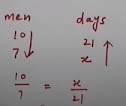 men days
10 21
7 x
10/7 = x/21